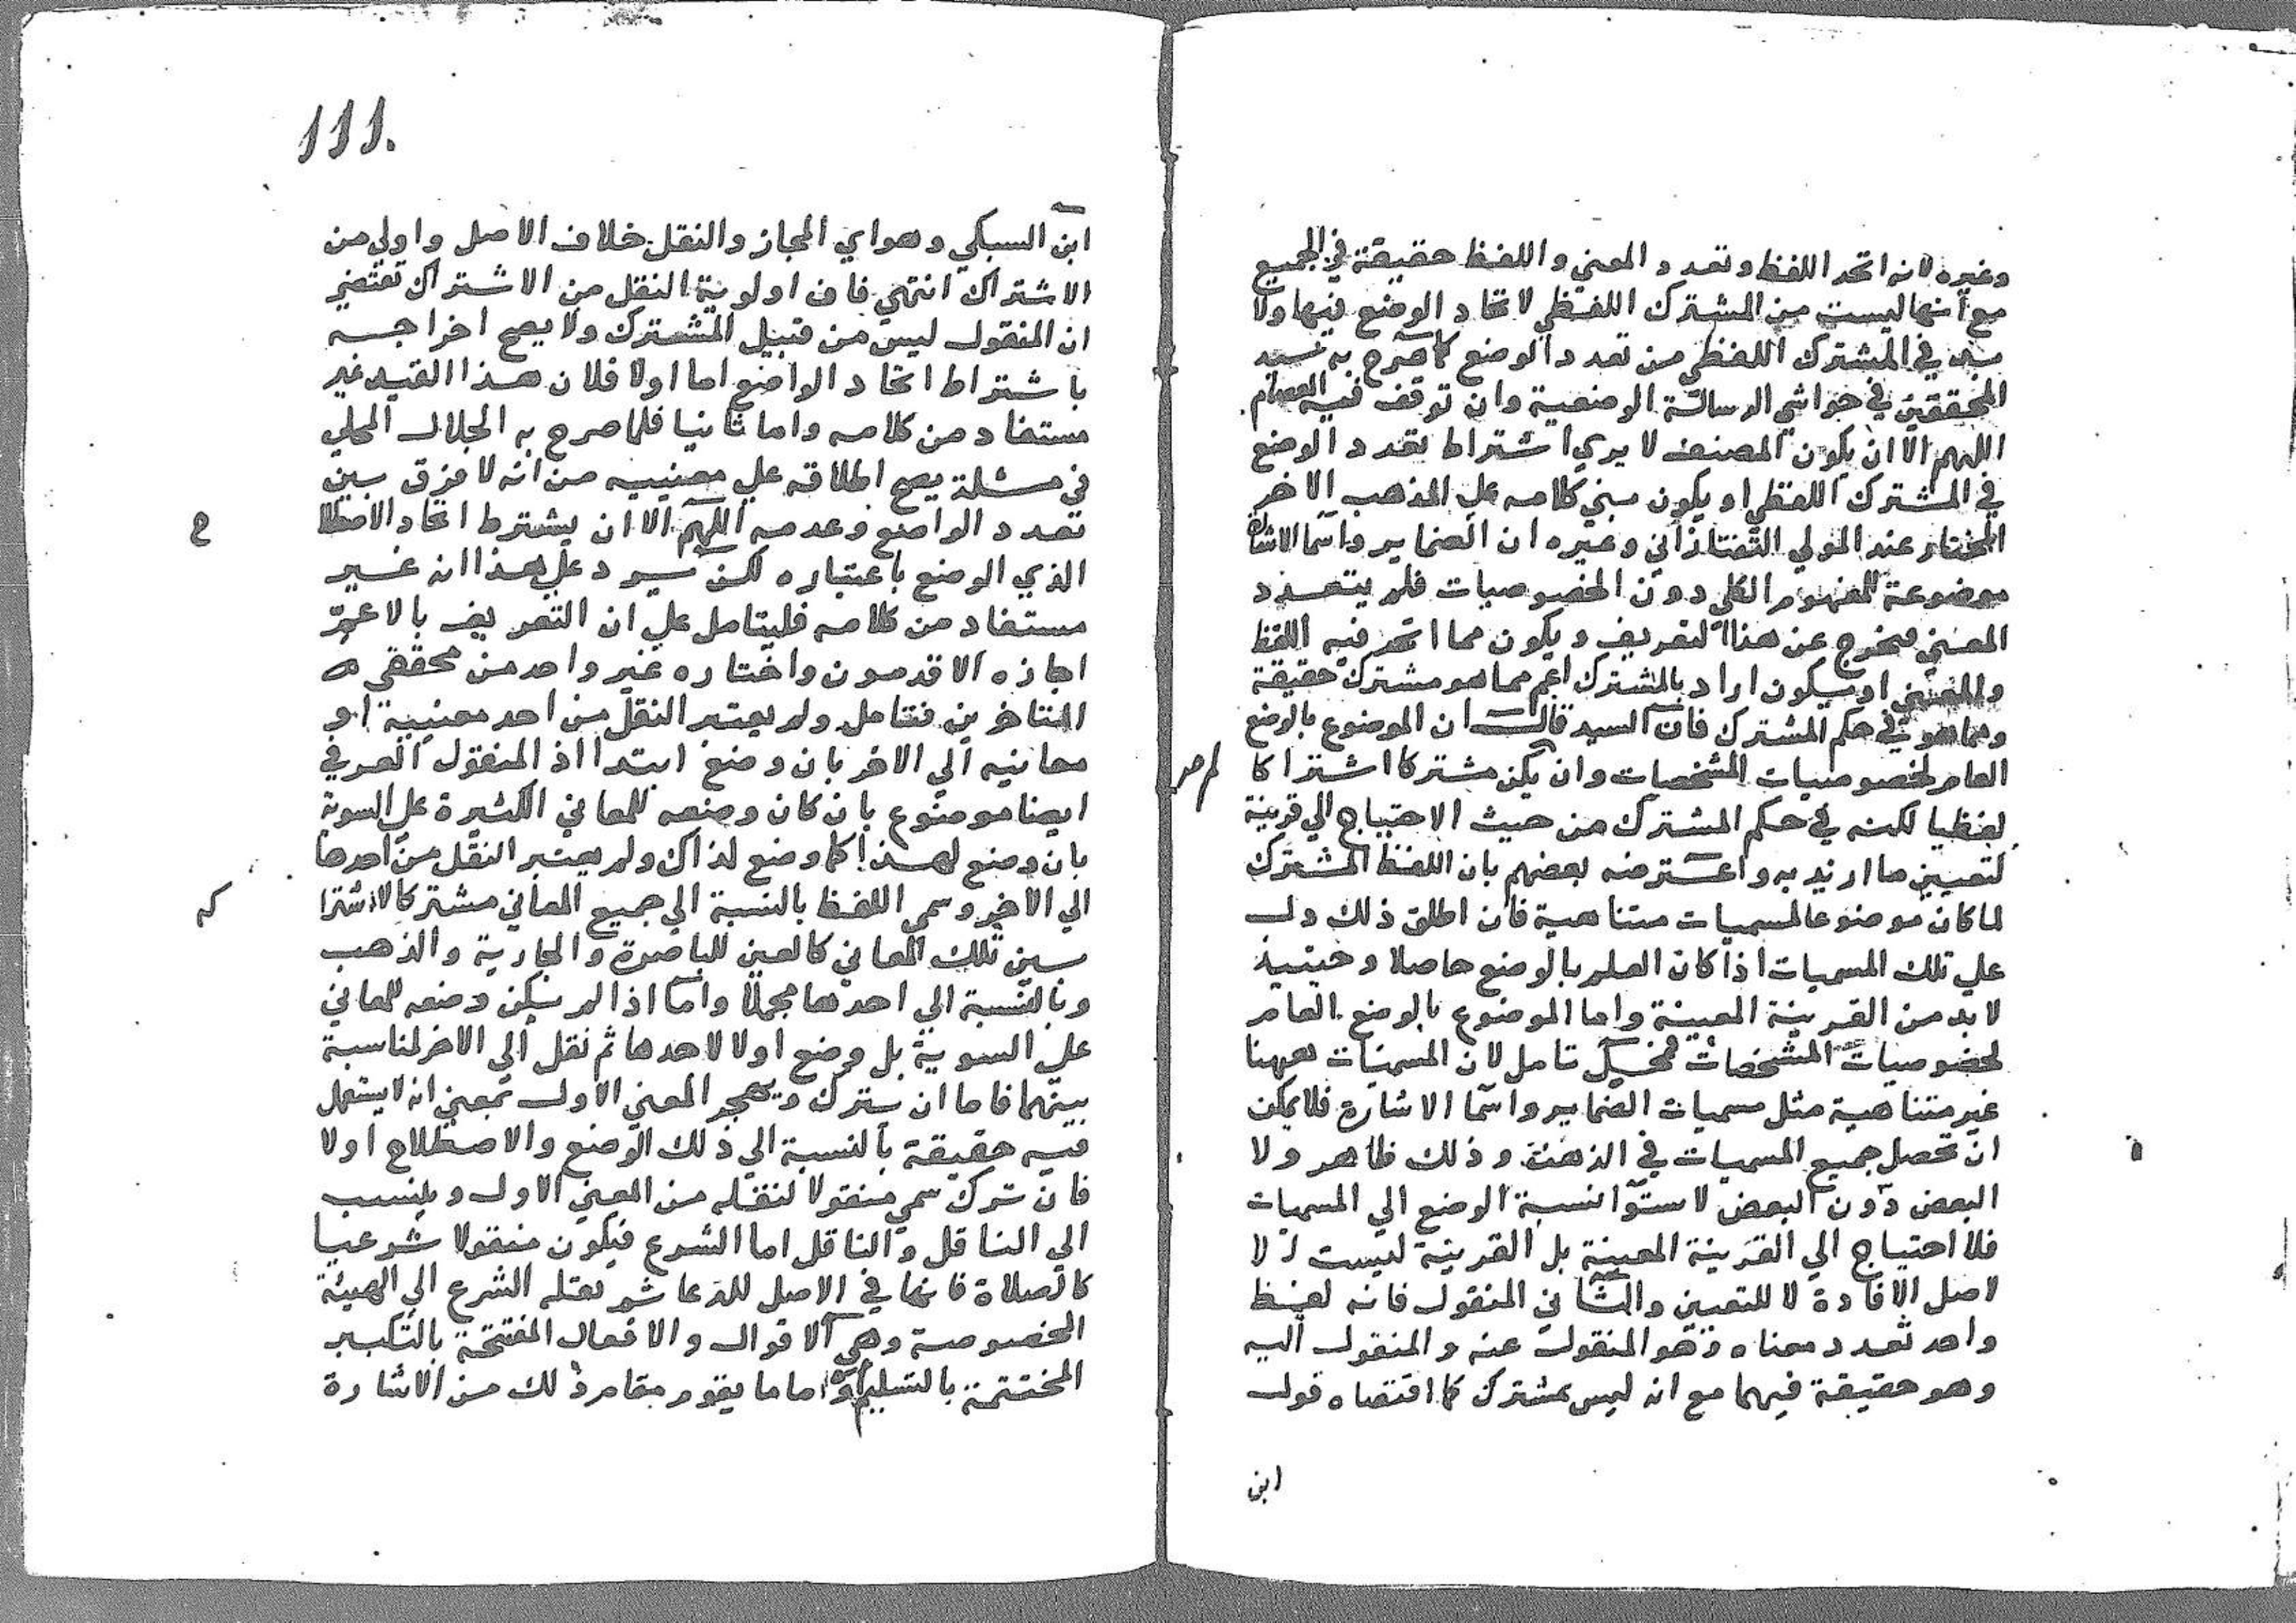 وغيره لانه اتحد اللفظ وتعدد المعني واللفظ حقيقة في الجميع
مع أنها ليست من المشترك اللفظي لاتحاد الوضع فيها ولا
بد في المشترك اللفظي من تعدد الوضع كما صرح به سيد
المحققين في حواشي الرسالة الوضعية وان توقف فيه العصام
اللهم الا ان يكون المصنف لا يري اشتراط تعدد الوضع
في المشترك اللفظي او يكون مبني كلامه علي المذهب الاخر
المختار عند المولي التفتازاني وغيره ان الضماير واسما الاشارة
موضوعة للمفهوم الكلي دون الخصوصيات فلم يتعدد
المعني فيخرج عن هذا التعريف ويكون مما اتحد فيه اللفظ
والمعني او يكون اراد بالمشترك اعم مما هو مشترك حقيقة
ومما هو في حكم المشترك فان السيد قال ان الموضوع بالوضع
العام لخصوصيات المشخصات وان يكن مشتركا اشتراكا
لم
لفظيا لكنه في حكم المشترك من حيث الاحتياج الي قرينة
لتعيين ما اريد به واعترضه بعضهم بان اللفظ المشترك
لما كان موضوعا لمسميات متناهية فان اطلق ذلك دل
علي تلك المسميات اذا كان العلم بالوضع حاصلا وحينيذ
لا بد من القرينة المعينة واما الموضوع بالوضع العام
لخصوصيات المشخصات فمحل تامل لان المسميات ههنا
غير متناهية مثل مسميات الضماير واسما الاشارة فلا يمكن
ان تحصل جميع المسميات في الذهن وذلك ظاهر ولا
البعض دون البعض لاستوا نسبة الوضع الي المسميات
فلا احتياج الي القرينة المعينة بل القرينة ليست الا
لاصل الافادة لا للتعيين والثاني المنقول فانه لفظ
واحد تعدد معناه وهو المنقول عنه والمنقول اليه
وهو حقيقة فيهما مع انه ليس بمشترك كما اقتضاه قول
ابن
111.
ابن السبكي وهو اي المجاز والنقل خلاف الاصل واولي من
الاشتراك انتهي فان اولوية النقل من الاشتراك تقتضي
ان المنقول ليس من قبيل المشترك ولا يصح اخراجه
باشتراط اتحاد الواضع اما اولا فلان هذا القيد غير
مستفاد من كلامه واما ثانيا فلما صرح به الجلال المحلي
في مسئلة يصح اطلاقه علي معنييه من انه لا فرق بين
تعدد الواضع وعدمه اللهم الا ان يشترط اتحاد الاصطلا
ح
الذي الوضع باعتباره لكن يرد علي هذا انه غير
مستفاد من كلامه فليتامل علي ان التعريف بالاعم
اجازه الاقدمون واختاره غير واحد من محققي
المتاخرين فتامل ولم يعتبر النقل من احد معنييه او
معانيه الي الاخر بان وضع ابتدا اذ المنقول العرفي
ايضا موضوع بان كان وضعه للمعاني الكثيرة علي السوية
بان وضع لهذا كما وضع لذاك ولم يعتبر النقل من احدها
الي الاخر وسمي اللفظ بالنسبة الي جميع المعاني مشتركا لاشترا
كه
بين تلك المعاني كالعين للباصرة والجارية والذهب
وبالنسبة الي احدها مجملا واما اذا لم يكن وضعه للمعاني
علي السوية بل وضع اولا لاحدها ثم نقل الي الاخر لمناسبة
بينهما فاما ان يترك ويهجر المعني الاول بمعني انه لا يستعمل
فيه حقيقة بالنسبة الي ذلك الوضع والاصطلاح اولا
فان ترك سمي منقولا لنقله من المعني الاول وينسب
الي الناقل والناقل اما الشرع فيكون منقولا شرعيا
كالصلاة فانها في الاصل للدعا ثم نقله الشرع الي الهيئة
المخصوصة وهي الاقوال والافعال المفتتحة بالتكبير
المختتمة بالتسليم واما ما يقوم مقام ذلك من الاشارة